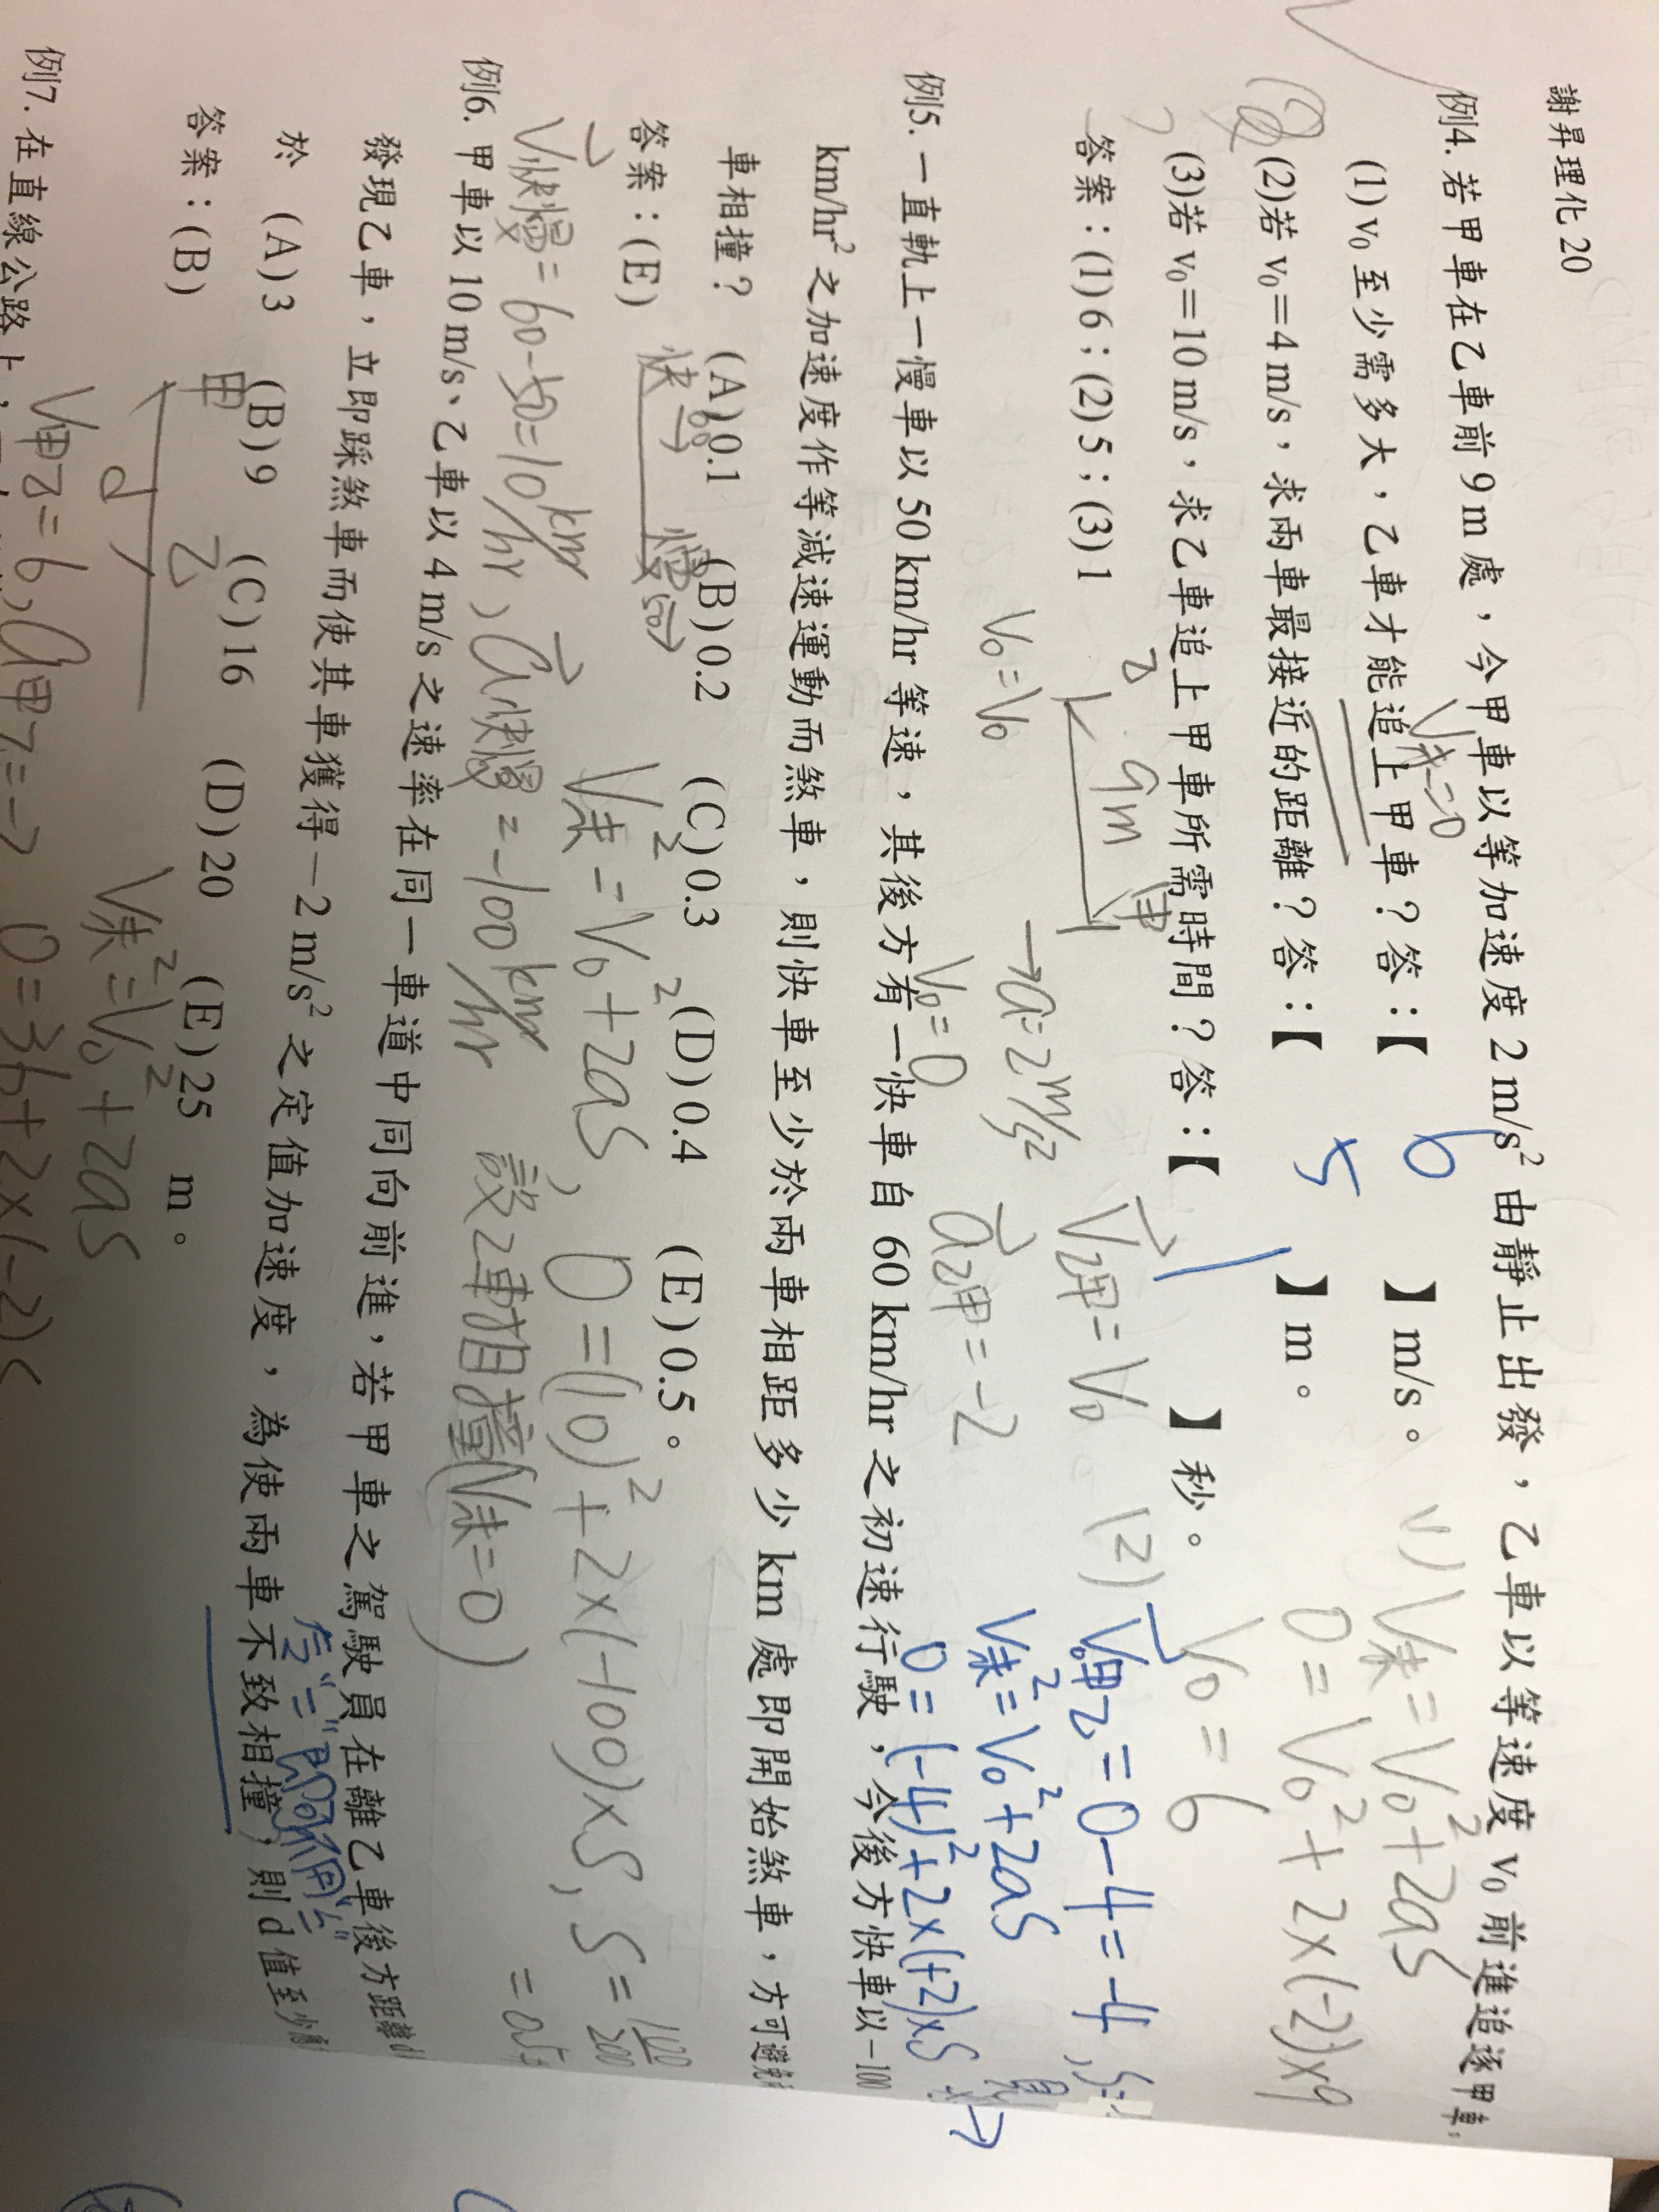 謝昇理化 20
例4. 若甲車在乙車前 9 m 處，今甲車以等加速度 2 m/s² 由靜止出發，乙車以等速度 v₀ 前進追逐甲車，
(1) v₀ 至少需多大，乙車才能追上甲車？答：【 6 】m/s。
(2)若 v₀＝4 m/s，求兩車最接近的距離？答：【 5 】m。
(3)若 v₀＝10 m/s，求乙車追上甲車所需時間？答：【 1 】秒。
答案：(1) 6；(2) 5；(3) 1
V末=0
(1) V末=V₀²+2aS
0=V₀²+2×(-2)×9
V₀=6
乙 9m 甲
V₀=V₀
→a=2m/s²
V₀=0
V乙甲=V₀
a乙甲=-2
(2) V甲乙=0-4=-4
V末²=V₀²+2aS
0=(-4)²+2×(+2)×S
例5. 一直軌上一慢車以 50 km/hr 等速，其後方有一快車自 60 km/hr 之初速行駛，今後方快車以－100
km/hr² 之加速度作等減速運動而煞車，則快車至少於兩車相距多少 km 處即開始煞車，方可避免兩
車相撞？ (A) 0.1 (B) 0.2 (C) 0.3 (D) 0.4 (E) 0.5。
答案：(E)
快 60→ 慢 50→
V末²=V₀²+2aS，0=(10)²+2×(-100)×S，S=100/200
V快慢=60-50=10km/hr，a快慢=-100km/hr
設2車相撞(V末=0)
例6. 甲車以 10 m/s、乙車以 4 m/s 之速率在同一車道中同向前進，若甲車之駕駛員在離乙車後方距離 d
發現乙車，立即踩煞車而使其車獲得－2 m/s² 之定值加速度，為使兩車不致相撞，則 d 值至少
於 (A) 3 (B) 9 (C) 16 (D) 20 (E) 25 m。
答案：(B)
甲 乙
d
V末²=V₀²+2aS
V甲乙=6，a甲乙=-2
0=36+2×(-2)S
例7. 在直線公路上，